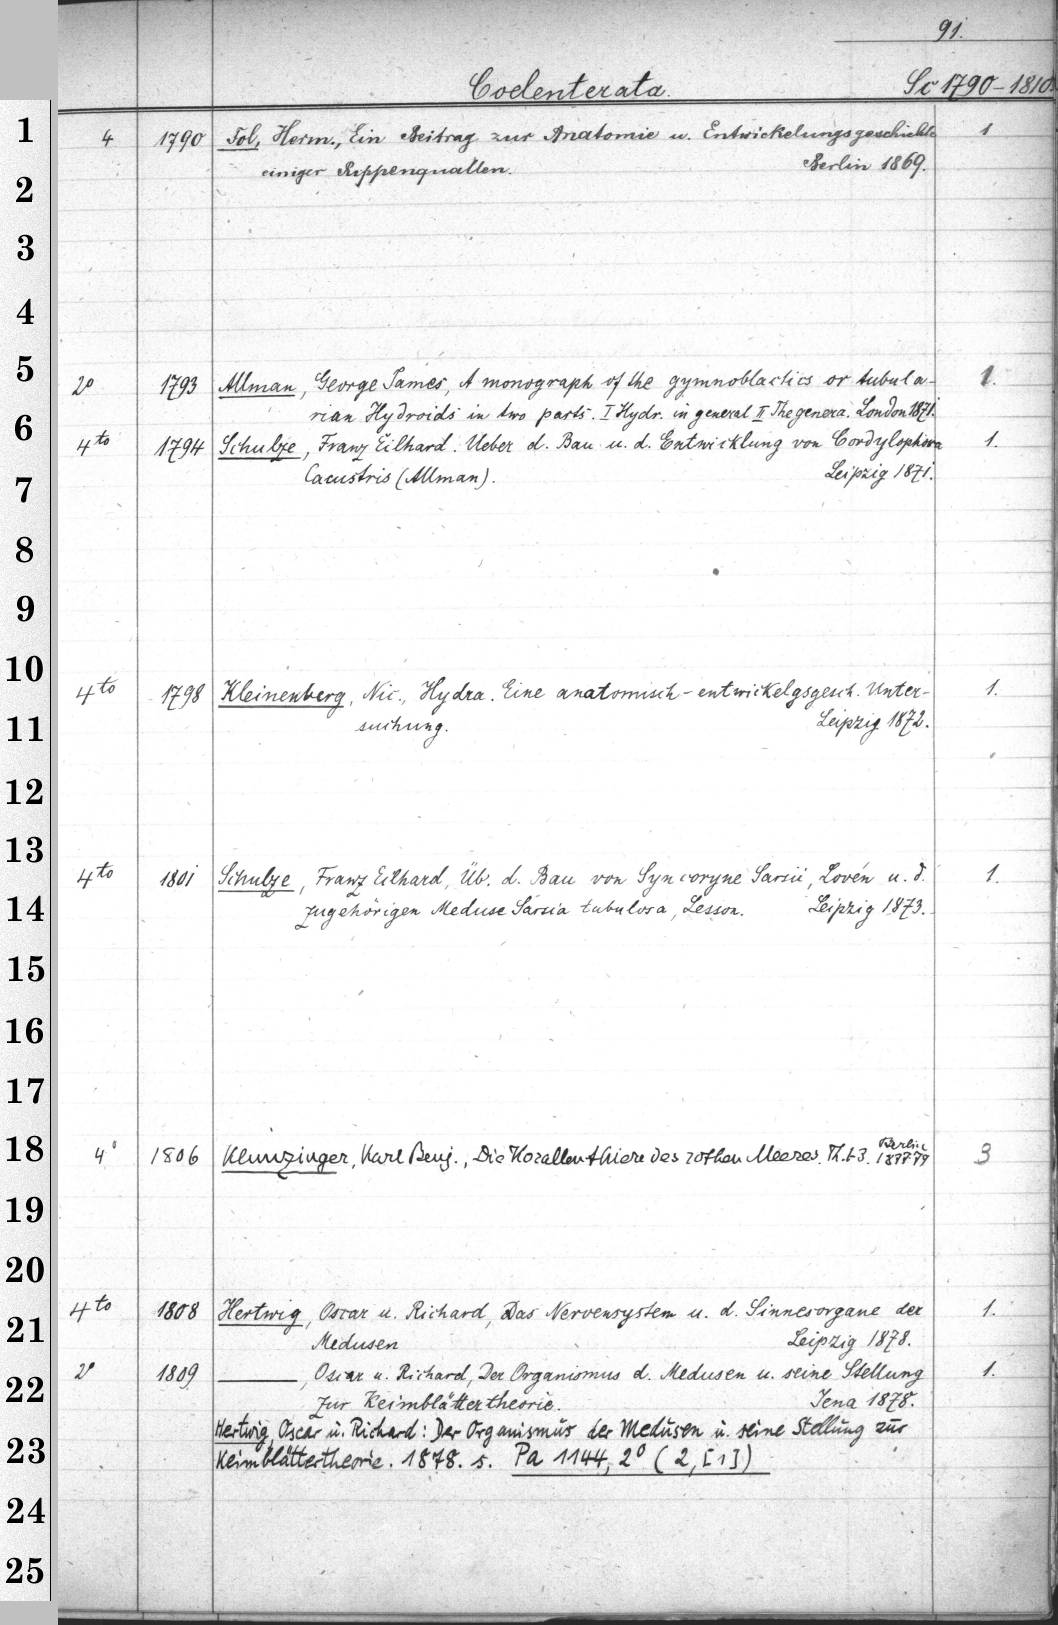 91.
Coelenterata. Sc 1790-1810
1 4 1790 Fol, Herm., Ein Beitrag zur Anatomie u. Entwickelungsgeschichte 1
2 einiger Rippenquallen. Berlin 1869.
3
4
5 2° 1793 Allman, George James, A monograph of the gymnoblastics or tubula- 1.
6 rian Hydroids in two parts. I Hydr. in general II The genera. London 1871.
4to 1794 Schulze, Franz Eilhard. Ueber d. Bau u. d. Entwicklung von Cordylophora 1.
7 Lacustris (Allman). Leipzig 1871.
8
9
10 4to 1798 Kleinenberg, Nic., Hydra. Eine anatomisch-entwickelgsgesch. Unter- 1.
11 suchung. Leipzig 1872.
12
13 4to 1801 Schulze, Franz Eilhard, Üb. d. Bau von Syncoryne Sarsii, Lovén u. d. 1.
14 zugehörigen Meduse Sarsia tubulosa, Lesson. Leipzig 1873.
15
16
17
18 4° 1806 Klunzinger, Karl Benj., Die Korallenthiere des rothen Meeres. Th. 1-3. Berlin 1877-79 3
19
20
21 4to 1808 Hertwig, Oscar u. Richard, Das Nervensystem u. d. Sinnesorgane der 1.
Medusen Leipzig 1878.
22 2° 1809 ———, Oscar u. Richard, Der Organismus d. Medusen u. seine Stellung 1.
zur Keimblättertheorie. Jena 1878.
Hertwig, Oscar u. Richard: Der Organismus der Medusen u. seine Stellung zur
23 Keimblättertheorie. 1878. s. Pa 1144, 2° (2,[1])
24
25